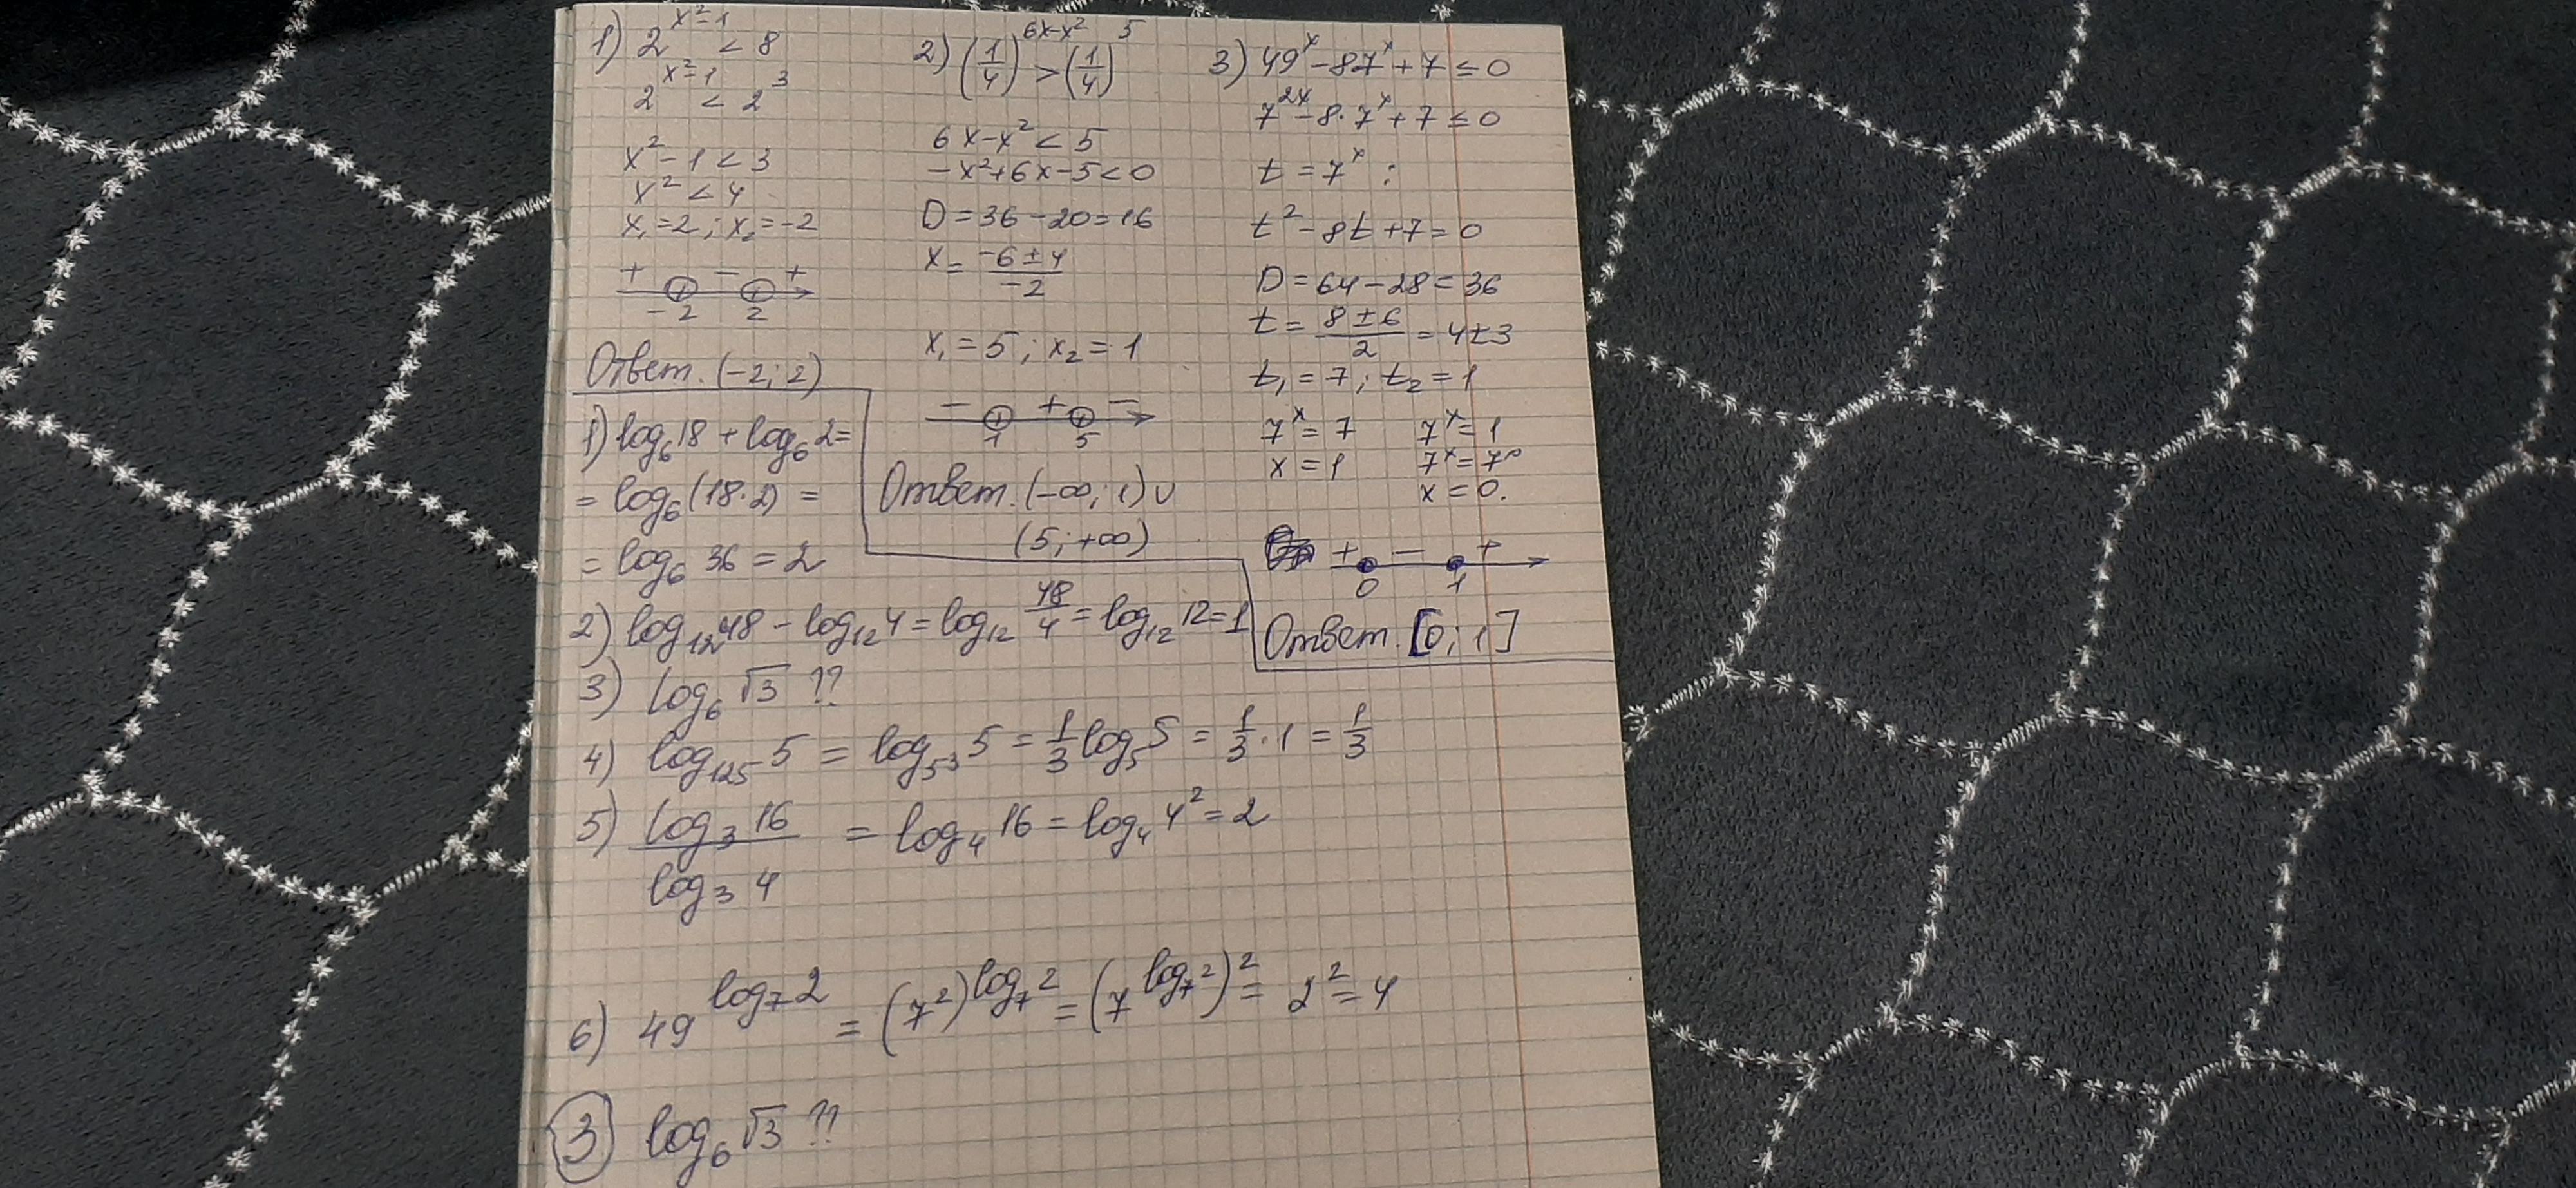 1) 2^{x²-1} < 8
2^{x²-1} < 2³
x² - 1 < 3
x² < 4
x₁ = 2 ; x₂ = -2
+ - +
-2 2
Ответ. (-2; 2)
2) (1/4)^{6x-x²} > (1/4)^5
6x - x² < 5
-x² + 6x - 5 < 0
D = 36 - 20 = 16
x = (-6 ± 4)/(-2)
x₁ = 5 ; x₂ = 1
- + -
1 5
Ответ. (-∞; 1) ∪
(5; +∞)
3) 49^x - 87^x + 7 ≤ 0
7^{2x} - 8·7^x + 7 ≤ 0
t = 7^x :
t² - 8t + 7 = 0
D = 64 - 28 = 36
t = (8 ± 6)/2 = 4 ± 3
t₁ = 7 ; t₂ = 1
7^x = 7 7^x = 1
x = 1 7^x = 7⁰
x = 0.
+ - +
0 1
Ответ. [0; 1]
1) log₆ 18 + log₆ 2 =
= log₆ (18·2) =
= log₆ 36 = 2
2) log₁₂ 48 - log₁₂ 4 = log₁₂ 48/4 = log₁₂ 12 = 1
3) log₆ √3 ??
4) log₁₂₅ 5 = log_{5³} 5 = 1/3 log₅ 5 = 1/3 · 1 = 1/3
5) log₃ 16 / log₃ 4 = log₄ 16 = log₄ 4² = 2
6) 49^{log₇ 2} = (7²)^{log₇ 2} = (7^{log₇ 2})² = 2² = 4
3) log₆ √3 ??